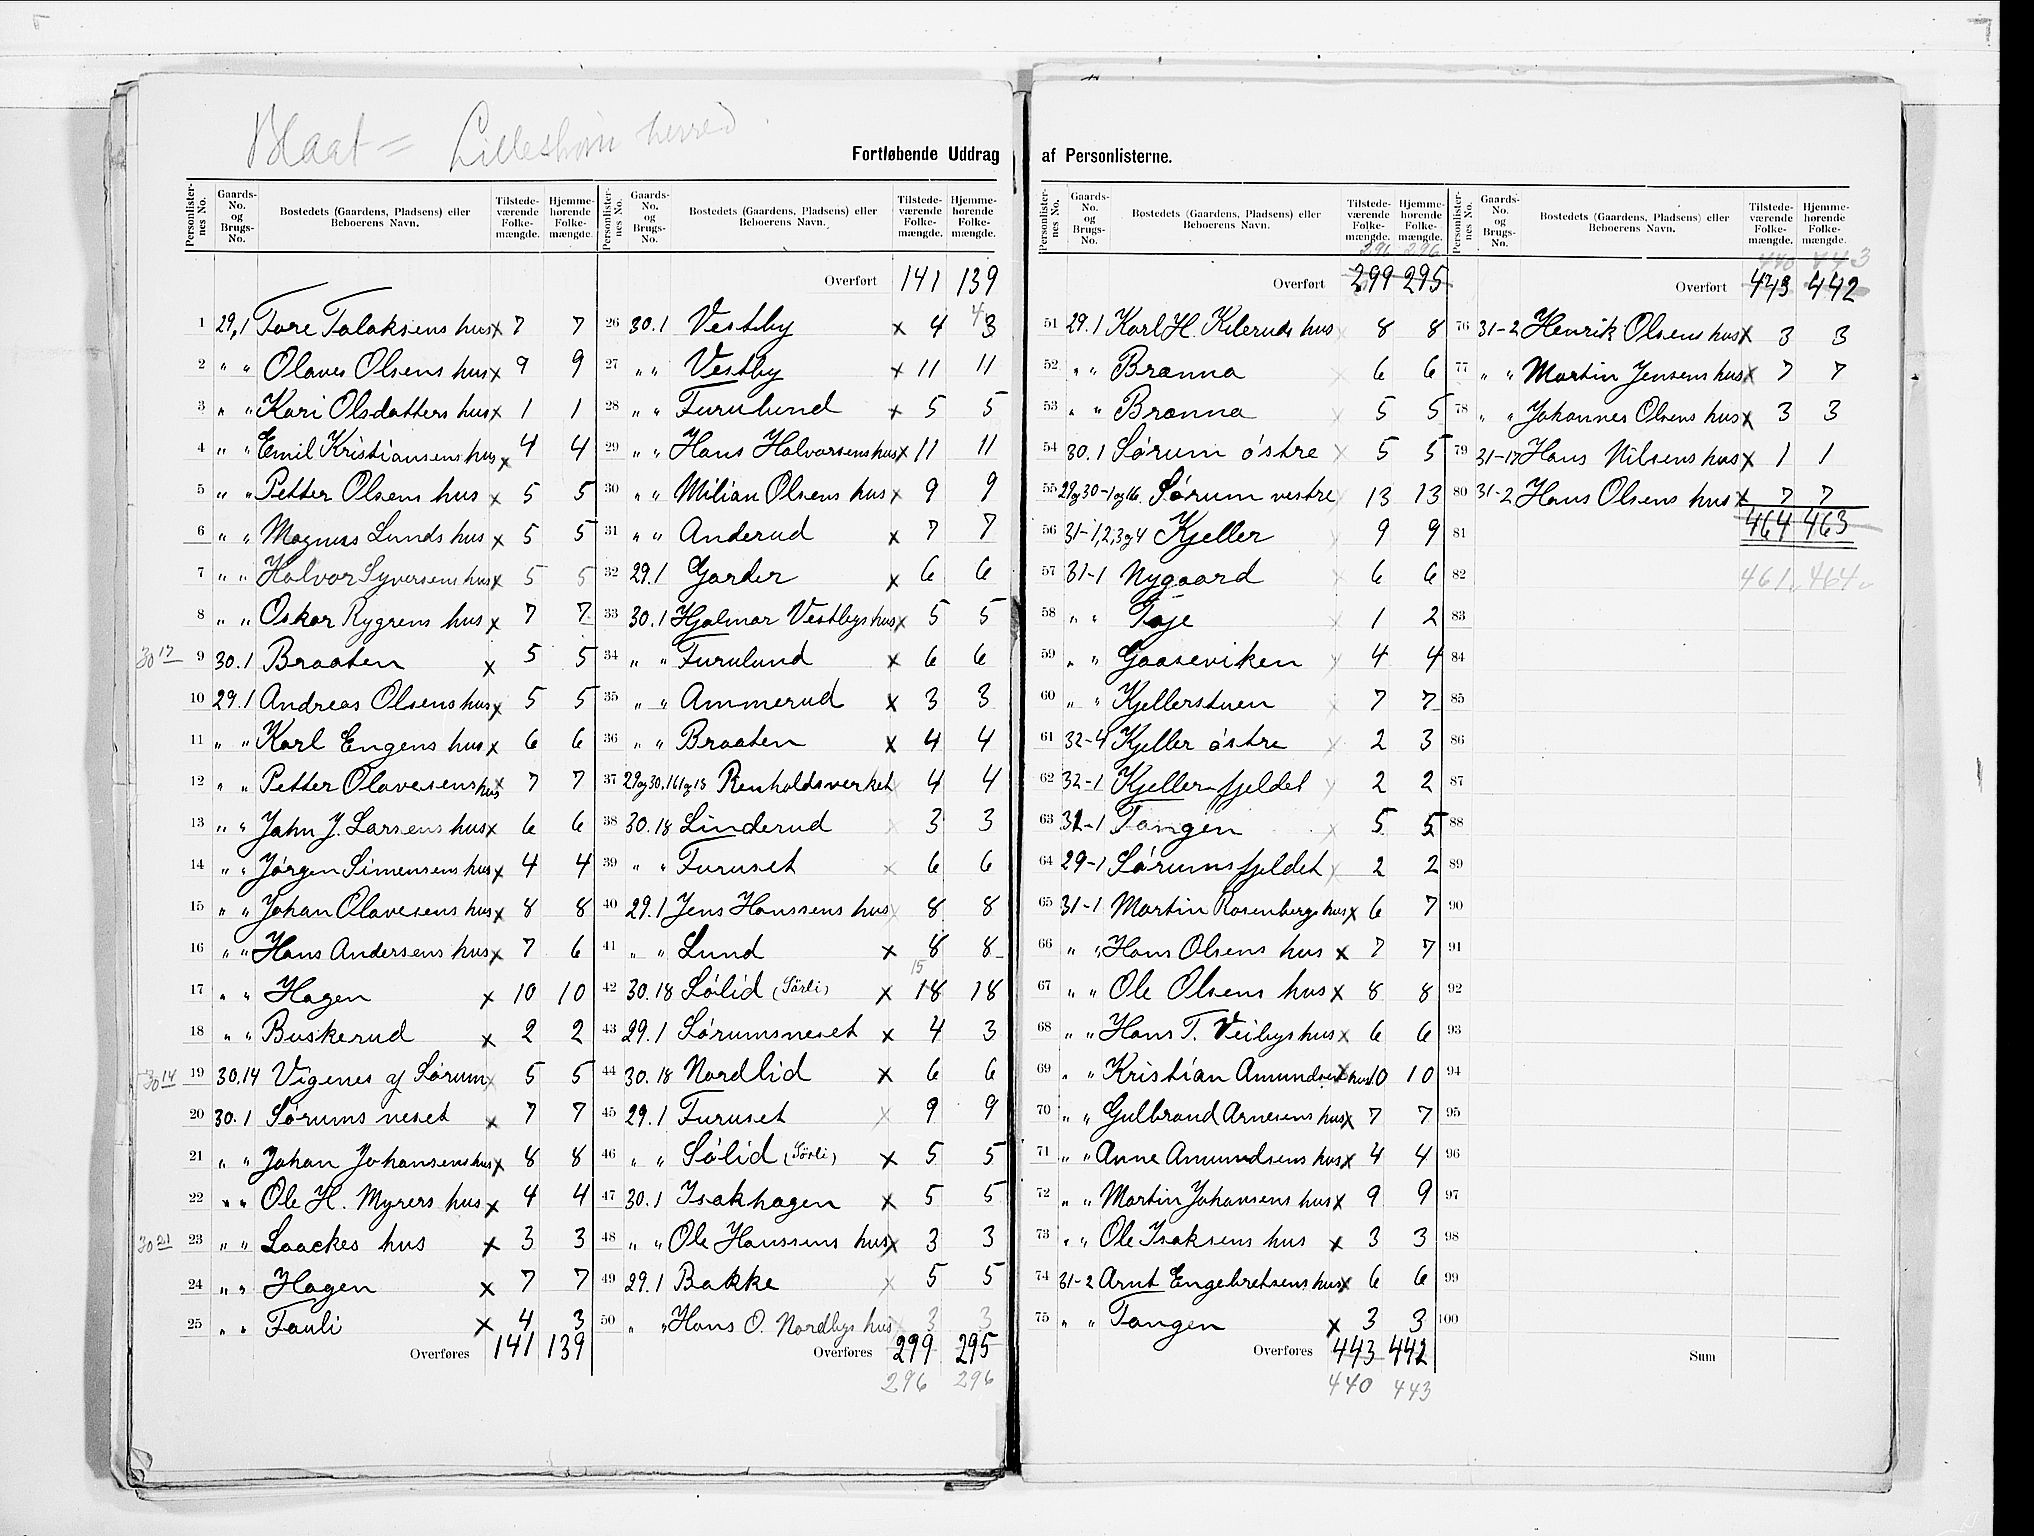 Blaat = Lillestrøm herred
Fortløbende Uddrag af Personlisterne.
Personlisternes No. | Gaards-No. og Brugs-No. | Bostedets (Gaardens, Pladsens) eller Beboerens Navn. | Tilstedeværende Folkemængde. | Hjemmehørende Folkemængde.
1 29,1 Tore Talaksens hus x 7 7
2 " " Olaves Olsens hus x 9 9
3 " " Kari Olsdatters hus x 1 1
4 " " Emil Kristiansens hus x 4 4
5 " " Petter Olsens hus x 5 5
6 " " Magnus Lunds hus x 5 5
7 " " Halvor Syversens hus x 5 5
8 " " Oskar Rygrens hus x 7 7
30 17 9 30.1 Braaten x 5 5
10 29.1 Andreas Olsens hus x 5 5
11 " " Karl Engens hus x 6 6
12 " " Petter Olavesens hus x 7 7
13 " " John J. Larsens hus x 6 6
14 " " Jørgen Simensens hus x 4 4
15 " " Johan Olavesens hus x 8 8
16 " " Hans Andersens hus x 7 6
17 " " Hagen x 10 10
18 " " Buskerud x 2 2
30 14 19 30.14 Vigenes af Sørum x 5 5
20 30.1 Sørumsneset x 7 7
21 " " Johan Johansens hus x 8 8
22 " " Ole H. Myrers hus x 4 4
30 21 23 " " Laackes hus x 3 3
24 " " Hagen x 7 7
25 " " Fauli x 4 3
Overføres 141 139
Personlisternes No. | Gaards-No. og Brugs-No. | Bostedets (Gaardens, Pladsens) eller Beboerens Navn. | Tilstedeværende Folkemængde. | Hjemmehørende Folkemængde.
Overført 141 139
26 30.1 Vestby x 4 4 3
27 " " Vestby x 11 11
28 " " Furulund x 5 5
29 " " Hans Halvorsens hus x 11 11
30 " " Milian Olsens hus x 9 9
31 " " Anderud x 7 7
32 29.1 Garder x 6 6
33 30.1 Hjalmar Vestbys hus x 5 5
34 " " Furulund x 6 6
35 " " Ammerud x 3 3
36 " " Braaten x 4 4
37 29og30.161og13 Renholdsverket x 4 4
38 30.18 Linderud x 3 3
39 " " Furuset x 6 6
40 29.1 Jens Hanssens hus x 8 8
41 " " Lund x 8 8
42 30.18 Sølid (Sörli) x 15 18 18
43 29.1 Sørumsneset x 4 3
44 30.18 Nordlid x 6 6
45 29.1 Furuset x 9 9
46 " " Sølid (Sörli) x 5 5
47 30.1 Isakhagen x 5 5
48 " " Ole Hanssens hus x 3 3
49 29.1 Bakke x 5 5
50 " " Hans O. Nordbys hus x 3 3
Overføres 299 295
296 296
Personlisternes No. | Gaards-No. og Brugs-No. | Bostedets (Gaardens, Pladsens) eller Beboerens Navn. | Tilstedeværende Folkemængde. | Hjemmehørende Folkemængde.
296 296
Overført 299 295
51 29.1 Karl H. Kileruds hus x 8 8
52 " " Brænna x 6 6
53 " " Brænna x 5 5
54 30.1 Sørum østre x 5 5
55 29og30-1og16 Sørum vestre x 13 13
56 31-1,2,3og4 Kjeller x 9 9
57 31-1 Nygaard x 6 6
58 " " Taje x 1 2
59 " " Gaaseviken x 4 4
60 " " Kjellerstuen x 7 7
61 32-4 Kjeller østre x 2 3
62 32-1 Kjellerfjeldet x 2 2
63 31-1 Tangen x 5 5
64 29-1 Sørumsfjeldet x 2 2
65 31-1 Martin Rosenbergs hus x 6 7
66 " " Hans Olsens hus x 7 7
67 " " Ole Olsens hus x 8 8
68 " " Hans T. Veibys hus x 6 6
69 " " Kristian Amundsens hus x 10 10
70 " " Gulbrand Arnesens hus x 7 7
71 " " Anne Amundsens hus x 4 4
72 " " Martin Johansens hus x 9 9
73 " " Ole Isaksens hus x 3 3
74 31-2 Arnt Engebretsens hus x 6 6
75 " " Tangen x 3 3
Overføres 443 442
440 443
Personlisternes No. | Gaards-No. og Brugs-No. | Bostedets (Gaardens, Pladsens) eller Beboerens Navn. | Tilstedeværende Folkemængde. | Hjemmehørende Folkemængde.
440 443
Overført 443 442
76 31-2 Henrik Olsens hus x 3 3
77 " " Martin Jensens hus x 7 7
78 " " Johannes Olsens hus x 3 3
79 31-17 Hans Nilsens hus x 1 1
80 31-2 Hans Olsens hus x 7 7
81 464 463
82 461 464
83
84
85
86
87
88
89
90
91
92
93
94
95
96
97
98
99
100
Sum